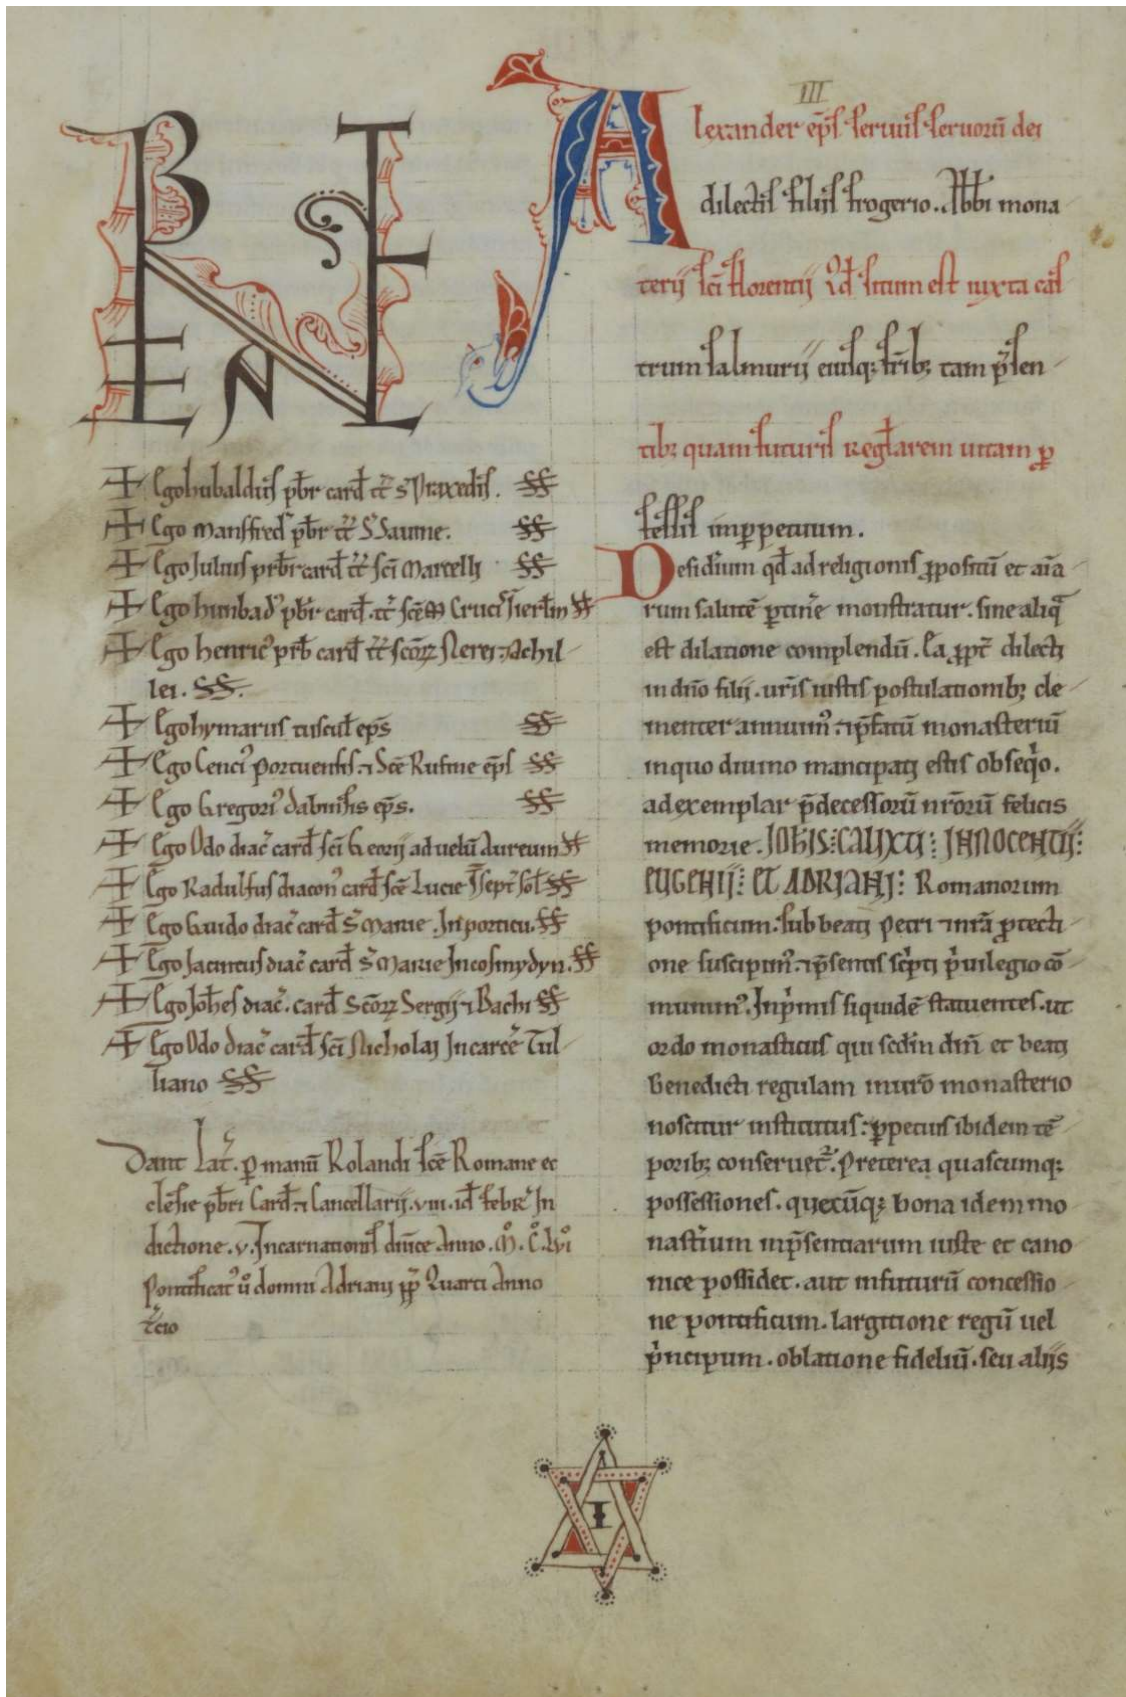 BENE VALETE
+ Ego hubaldus p̄br card̄ tt̄ s̄ Praxedis. SS
+ Ego Manfred' p̄br tt̄ S̄ Saũine. SS
+ Ego Julius pr̄br card̄ tt̄ sc̄i Marcelli SS
+ Ego hunbad' pb̄r card̄. tt̄ sc̄e Crucis Ierl̄m SS
+ Ego henric' prb̄ card̄ tt̄ sc̄oꝝ Nerei ⁊ Achil
lei. SS.
+ Ego hymarus tuscul̄ ep̄s SS
+ Ego Cenci' Portuensis ⁊ Sc̄e Rufine ep̄s SS
+ Ego Gregori' Sabinēsis ep̄s. SS
+ Ego Odo diac̄ card̄ sc̄i Georij ad uelū Aureum SS
+ Ego Radulfus diacon' card̄ sc̄e Lucie ī sept̄ sol̄ SS
+ Ego Guido diac̄ card̄ s̄ Marie. In porticu. SS
+ Ego Jacintus diac̄ card̄ s̄ Marie In cosmydyn. SS
+ Ego Joh̄es diac̄. card̄ Sc̄oꝝ Sergij ⁊ Bachi SS
+ Ego Odo diac̄ card̄ sc̄i Nicholaj In carcē Tul
liano SS
Dant Lat̄. ꝑ manū Rolandi sc̄e Romane ec
clēsie pb̄ri Card̄. ⁊ Cancellarij. viii. id̄ febr̄ In
dictione. v. Incarnationis dn̄ice Anno. M̊. C̊. Lvi̊
Pontificat' ů domni Adriani pp̄ Quarti Anno
t̄cio
III
Alexander ep̄s. seruus seruorū dei
dilectis filiis frogerio. Abb̄i mona
terij sc̄i florentij qd̄ situm est iuxta cas
trum salmurij eiusq; fr̄ib; tam p̄sen
tib; quam futuris regl̄arem uitam ꝓ
fessis inꝑpetuum.
Desid̄ium qd̄ ad religionis ꝓpositū et aīa
rum salutē ꝑtin̄e monstratur. sine aliq̄
est dilatione complendū. Ea ꝓpt̄ dilecti
in dn̄o filij. ur̄is iustis postulationib; cle
menter annuim'. ⁊ p̄fatū monasteriū
in quo diuino mancipati estis obseqͥo.
ad exemplar p̄decessorū nr̄orū felicis
memorie. JOHIS: CALIXTI: INNOCENTII:
EUGENII: ET ADRIANI: Romanorum
pontificum. sub beati Petri ⁊ nr̄a ꝓtecti
one suscipim'. ⁊ p̄sentis sc̄pti pͥuilegio cō
munim'. In pͥmis siquidē statuentes. ut
ordo monasticus qui sed̄m dn̄i et beati
Benedicti regulam in ur̄o monasterio
noscitur institutus: ꝑpetuis ibidem tē
porib; conseruet̄. Preterea quascumq;
possessiones. quecūq; bona idem mo
nast̄ium inp̄sentiarum iuste et cano
nice possidet. aut infuturū concessio
ne pontificum. largitione regū uel
pͥncipum. oblatione fideliū. seu aliis
I